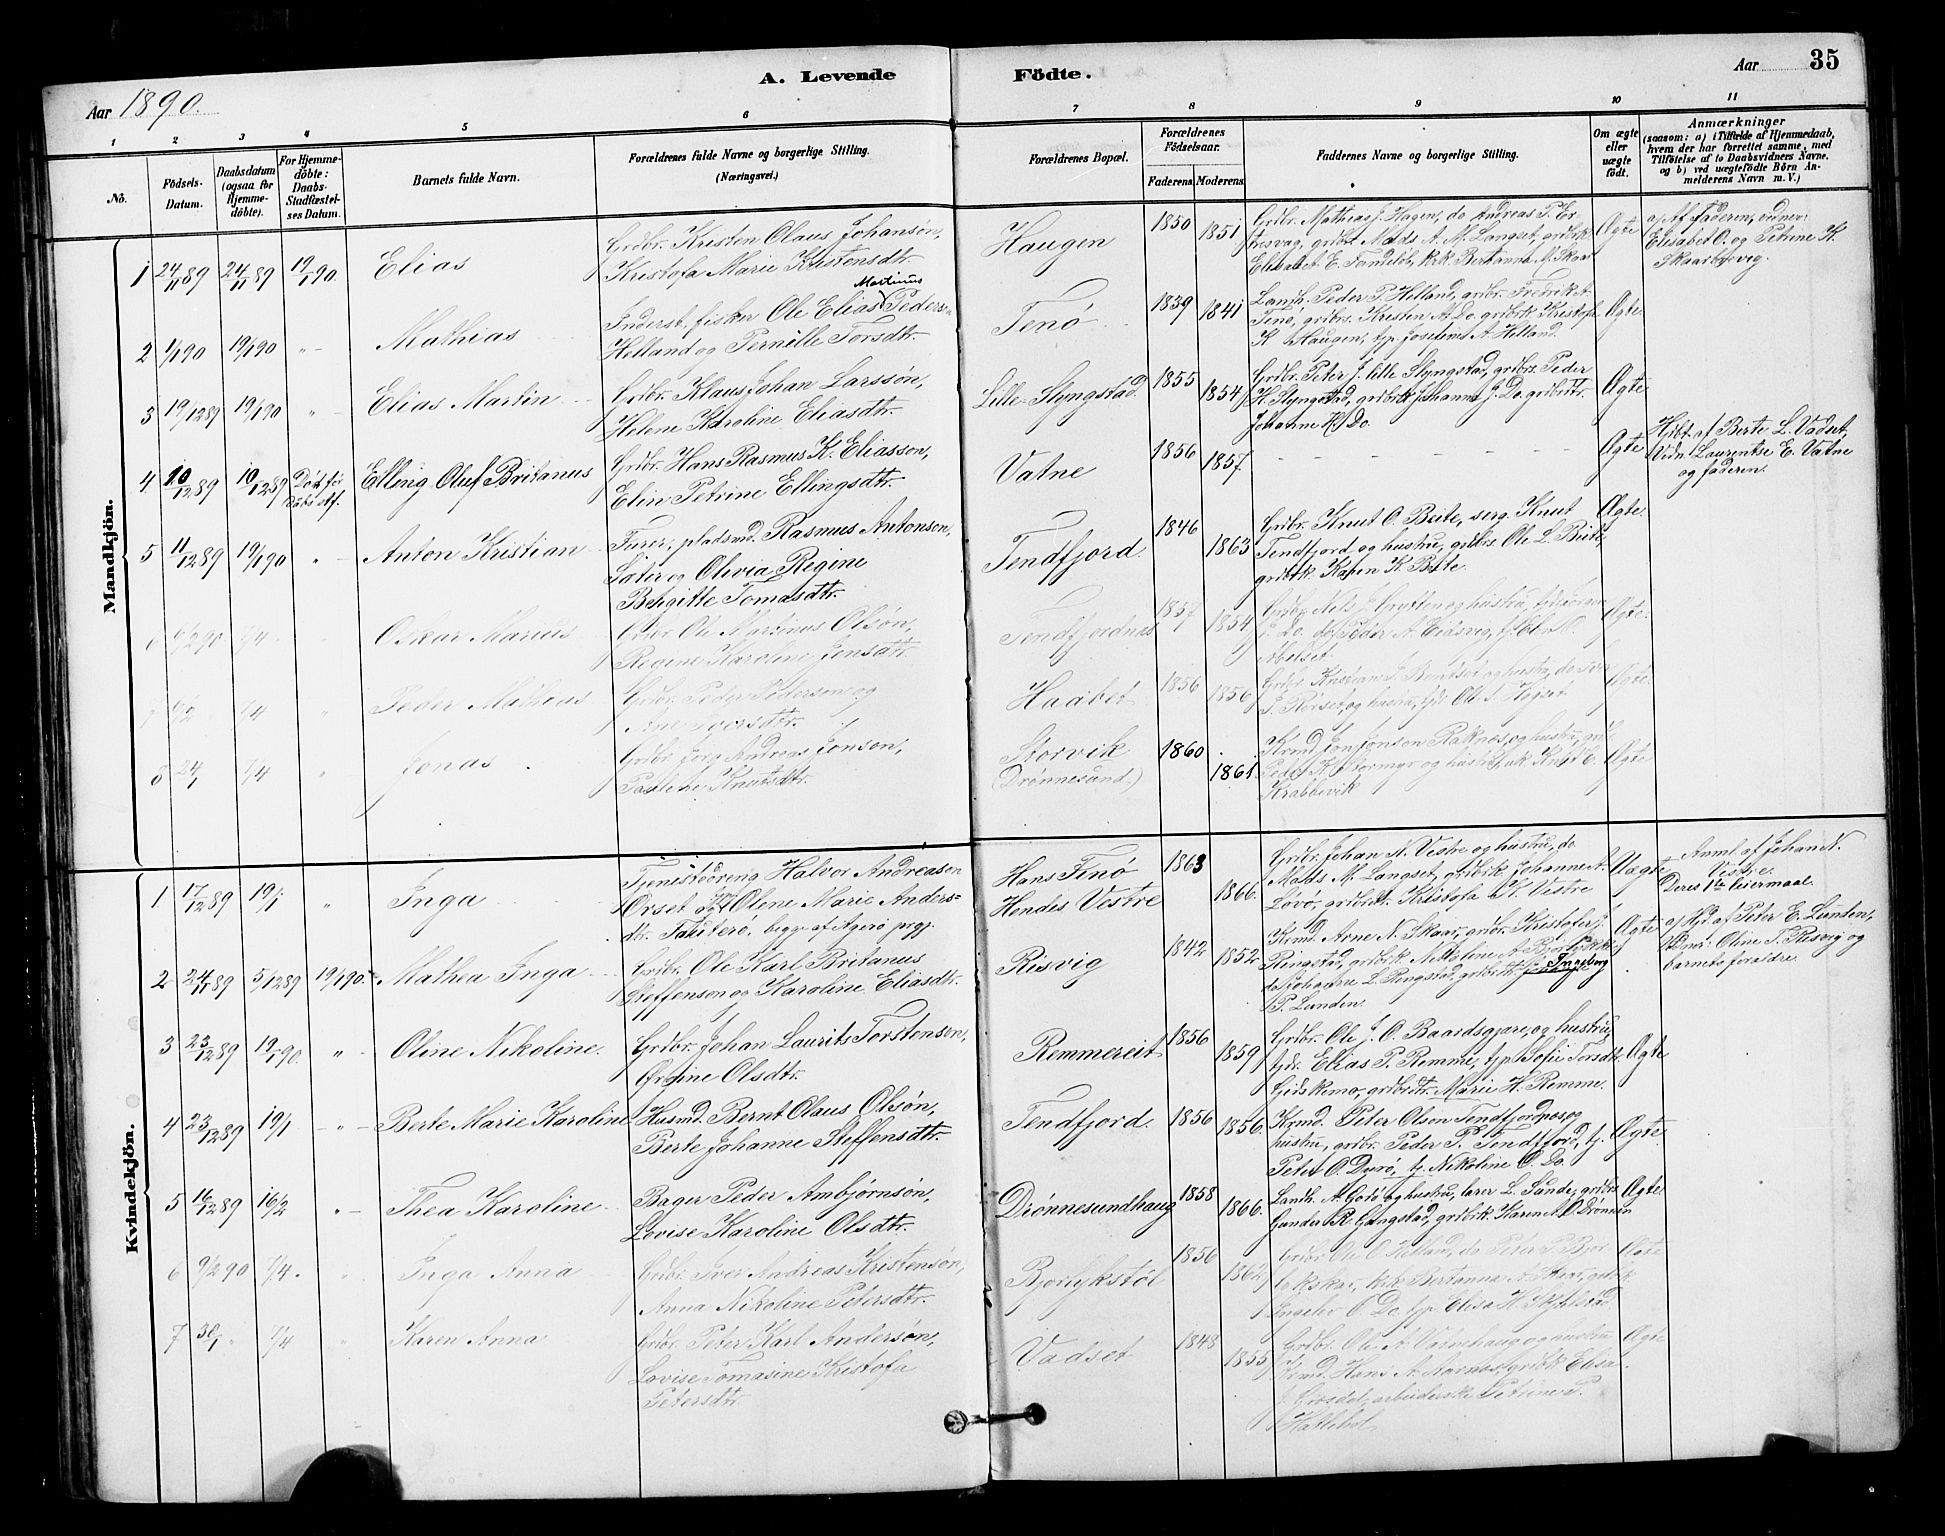 A. Levende
Födte.
Aar
35
Aar 1890.
1 2 3 4 5 6 7 8 9 10 11
No.
Födsels-
Datum.
Daabsdatum
(ogsaa för
Hjemme-
döbte).
For Hjemme-
döbte:
Daabs-
Stadfæstel-
ses Datum.
Barnets fulde Navn.
Forældrenes fulde Navne og borgerlige Stilling.
(Næringsvei.)
Forældrenes Bopæl.
Forældrenes
Födselsaar.
Faderens.
Moderens.
Faddernes Navne og borgerlige Stilling.
Om ægte
eller
uægte
født.
Anmærkninger
(saasom: a) i Tilfælde af Hjemmedaab,
hvem der har forrettet samme, med
Tilföielse af to Daabsvidners Navne.
og b) ved uægtefödte Börn An-
melderens Navn m. V.)
Mandkjön.
1 24/11 89 24/11 89 19/1 90. Elias
Grdbr. Kristen Olaus Johansøn,
Kristofa Marie Knutensdtr.
Haugen 1850 1851
Grdbr. Mathias J. Hagen, do Andreas P. Er
grdbr. Mads A. M. Langset, grdbrk.
Ægte
a) Af faderen,
Elisabet O. og Petrine K.
Skaarbrevig.
2 1/1 90 19/1 90 " Mathias
Martinus
Inderst, fisker Ole Elias Peders.
Helland og Pernille Torsdtr.
Tenö 1839 1841
Landh. Peder P. Helland, grdbr. Fredrik A.
Tenö, grdbrs. Kristen A. Do. grdbrk Kristofa
K. Haugen, tjp. Josefine A. Helland.
Ægte
3 19/12 89 19/1 90 " Elias Martin
Grdbr. Klaus Johan Larssøn,
Helene Karoline Eliasdtr.
Lille-Slyngstad. 1855 1854
Grdbr. Peter J. Lille Slyngstad, grdbr. Peder
K. Slyngstad, grdbrk Johanne J. Do. grdbrdtr.
Johanne K. Do.
Ægte
4 10/12 89 10/12 89 Død før
Elling Oluf Britanus
Grdbr. Hans Rasmus K. Eliasson,
Elin Petrine Ellingsdtr.
Vatne 1856 1857
Ægte
Hjdbt. af Berte L. Vadset,
Vidn. Laurentse E. Vatne
og faderen.
5 11/12 89 19/1 90 " Anton Kristian
Furer, pladsmd. Rasmus Antonson,
Sæter og Olivia Regine
Bergitte Tomasdtr.
Tendfjord. 1846 1863
Grdbr. Knut O. Beite, serg. Knut
Tendfjord og hustru, grdbrs Ole L. Beite,
grdbrk. Karen K. Beite.
Ægte.
6 6/2 90 7/4 Oskar Marius
Grdbr. Ole Martinus Olsøn,
Regine Karoline Jonsdtr.
Tendfjordnes 1857 1854
Grdbr. Nels J. Grytten og hustru,
J. Do. do Peder A. Eidsvig, tj. Ole O.
Abelset.
Ægte.
7 7/4 Peder Mathias
Grdbr. Peder Pederson og
Iversdtr.
Haabet 1856 1856
Grdbr. Kristian J. og hustru, do
J. Rørset, og hustru,
Ægte.
8 24/1 7/4 Jonas
Grdbr. Jørg. Andreas Jonson,
Pauline Knutsdtr.
Storvik
(Drönnesund.) 1860 1861
Krmd. Jon Jonson Raknes, og hustru, grd.
Peder K. Stormyr og hustru, Knut E.
Krabbevik
Ægte
Kvindekjön.
1 17/12 89 19/1 " Inga
Tjenestedreng Halvor Andreasen
Orset og Olene Marie Anders-
dtr. Tautero, begge af Agerø prgj.
Hans Tenö
Hendes Vestre 1863 1866.
Grdbr. Johan N. Vestre og hustru, do
Mads M. Langset, grdbrk Johanne A.
Løvø, grdbrdtr. Kristofa K. Vestre
Uægte
Anml. af Johan N.
Vestre.
Deres 1ste leiermaal.
2 24/11 89 5/12 89 19/1 90. Mathea Inga
Grdbr. Ole Karl Britanus
Steffenson og Karoline Eliasdtr.
Risvig 1842 1852
Krmd. Arne N. Skaar, grdbr. Kristofer J.
Ringstad, grdbrk Nikoline A.
do Johanne L. Ringstad, grdbrdtr. Ingeborg
P. Lunden.
Ægte
a) Hjd. af Peter E. Lunden,
Oline T. Risvig og
barnets forældre.
3 23/12 89 19/1 90. " Oline Nikoline.
Grdbr. Johan Laurits Torstenson,
Olsdtr.
Remmereit 1856 1859
Grdbr. Ole J. O. Baardsgjære, og hustru,
tjdr. Elias P. Remme, tjp. Sofie Torsdtr.
Gjdskemo, grdbrdtr. Marie H. Remme.
Ægte
4 23/12 89 19/1 " Berte Marie Karoline
Husmd. Bernt Olaus Olsøn,
Berte Johanne Steffensdtr.
Tendfjord. 1856 1856.
Krmd. Peter Olson Tendfjordnes og
hustru, grdbr. Peder P. Tendfjord, tj.
Peter O. Dyrø, tj. Nikoline O. Do.
Ægte.
5 16/12 89 16/2 " Thea Karoline
Bager Peder Ambjørnsøn,
Lovise Karoline Olsdtr.
Drönnesundhaug 1858 1866.
Landh. A. Godø og hustru, lærer L. Sunde, grdbrs
Gunder R. Gangstad, grdbrk. Karen A. O. Drönnen
Ægte
6 9/2 90 7/4. " Inga Anna
Grdbr. Iver Andreas Kristensøn,
Anna Nikoline Petersdtr.
Bjørlykstöl 1856 1862
Grdbr. Ole O. Helland, do Peter P. Bjør
lykskar, krk. Bertanna A. Skar, grdbrk
O. Do. tjp. Elisa H.
Ægte
7 30/1 " 7/4 " Karen Anna
Grdbr. Peter Karl Andersøn,
Lovise Tomasine Kristofa
Petersdtr.
Vadset 1848 1855
Grdbr. Ole A. Vatnehaug og hustru
Krmd. Hans A. Stornes, grdbrk Elisa
Petrine P.
Ægte